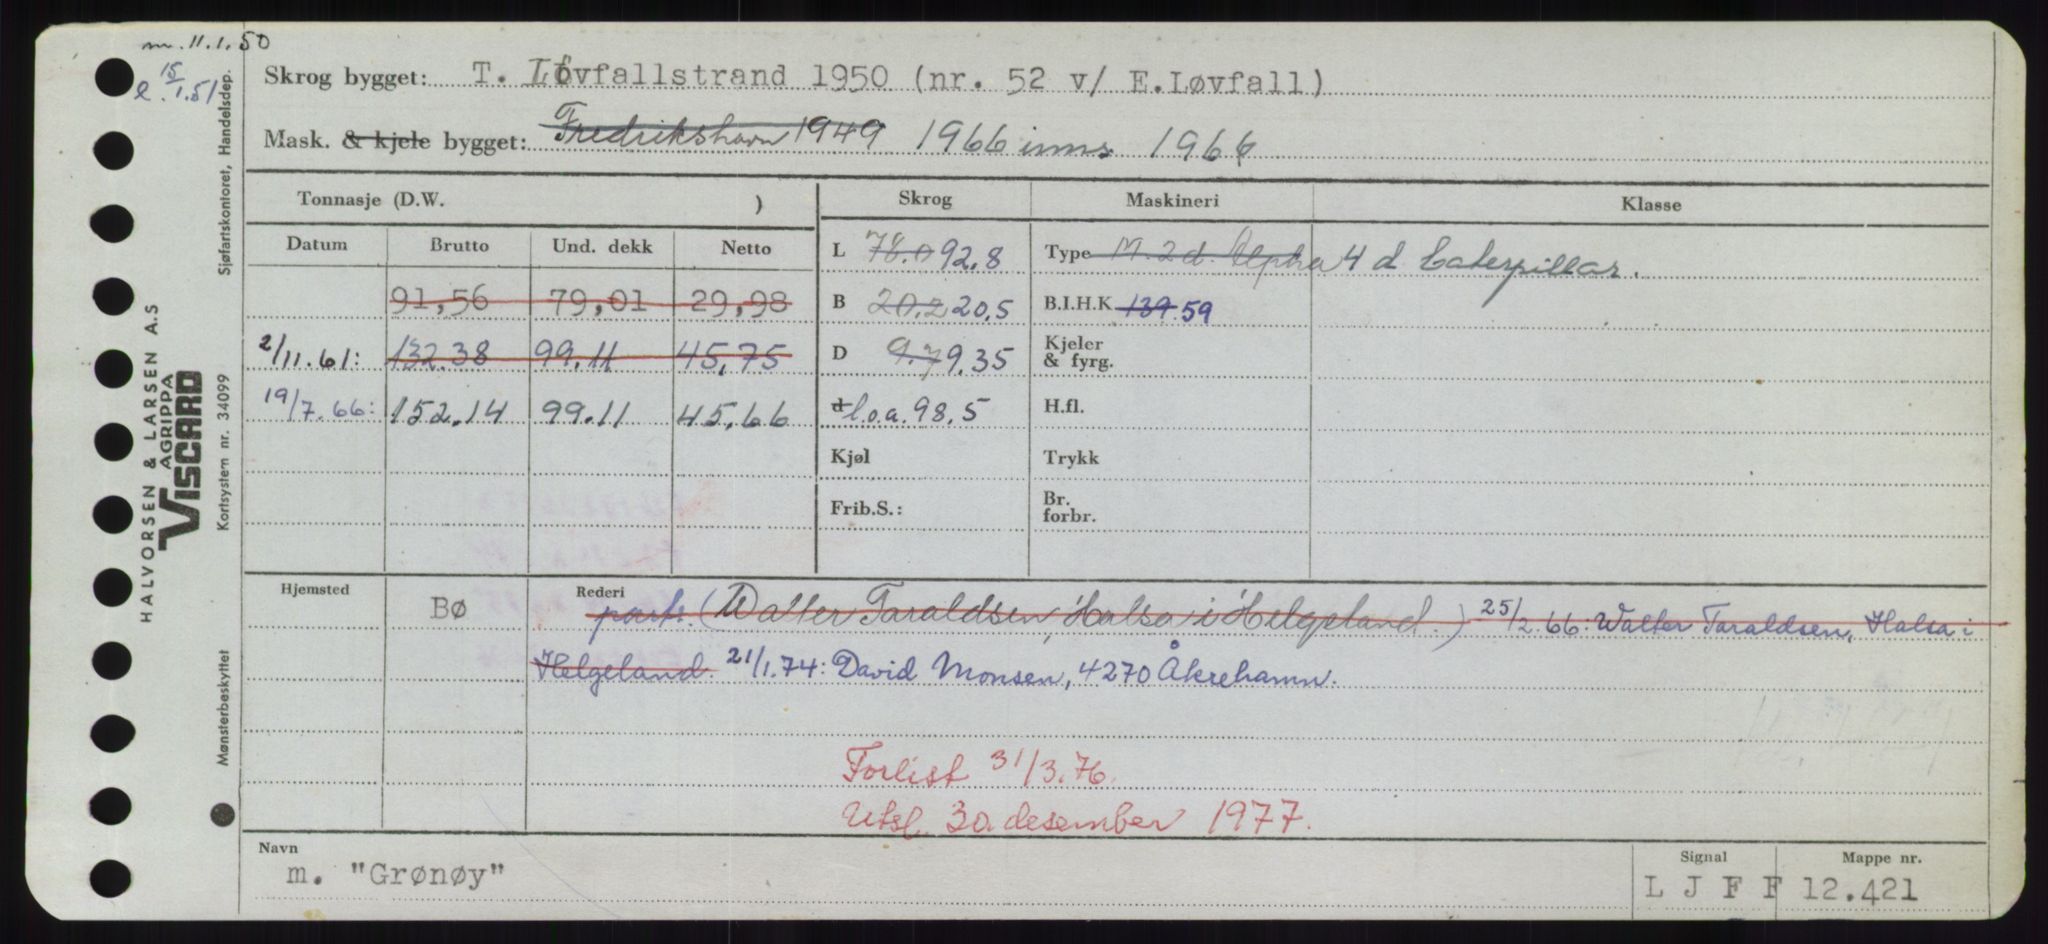 m. 11.1.50
e. 15/1.51
Skrog bygget: T. Løvfallstrand 1950 (nr. 52 v/ E.Løvfall)
Mask. & kjele bygget: Fredrikshavn 1949 1966 inns 1966
Tonnasje (D.W. )
Skrog Maskineri Klasse
Datum Brutto Und. dekk Netto
L 78.0 92,8 Type M. 2 d. Alpha 4 d Caterpillar.
91,56 79,01 29,98 B 20.2 20,5 B.I.H.K 139 59
2/11.61: 132.38 99.11 45,75 D 9.7 9,35 Kjeler & fyrg.
19/7.66: 152.14 99.11 45,66 d l.o.a. 98,5 H.fl.
Kjøl Trykk
Frib.S.: Br. forbr.
Hjemsted Bø Rederi partr. (Walter Taraldsen, Halsa i Helgeland.) 25/2.66: Walter Taraldsen, Halsa i
Helgeland. 21/1.74: David Monsen, 4270 Åkrehamn.
Forlist 31/3.76.
Utsl. 30 desember 1977.
Navn Signal Mappe nr.
m. "Grønøy" L J F F 12.421
HALVORSEN & LARSEN A.S
AGRIPPA
VISCARD
Sjøfartskontoret, Handelsdep.
Kortsystem nr. 34099
Mønsterbeskyttet